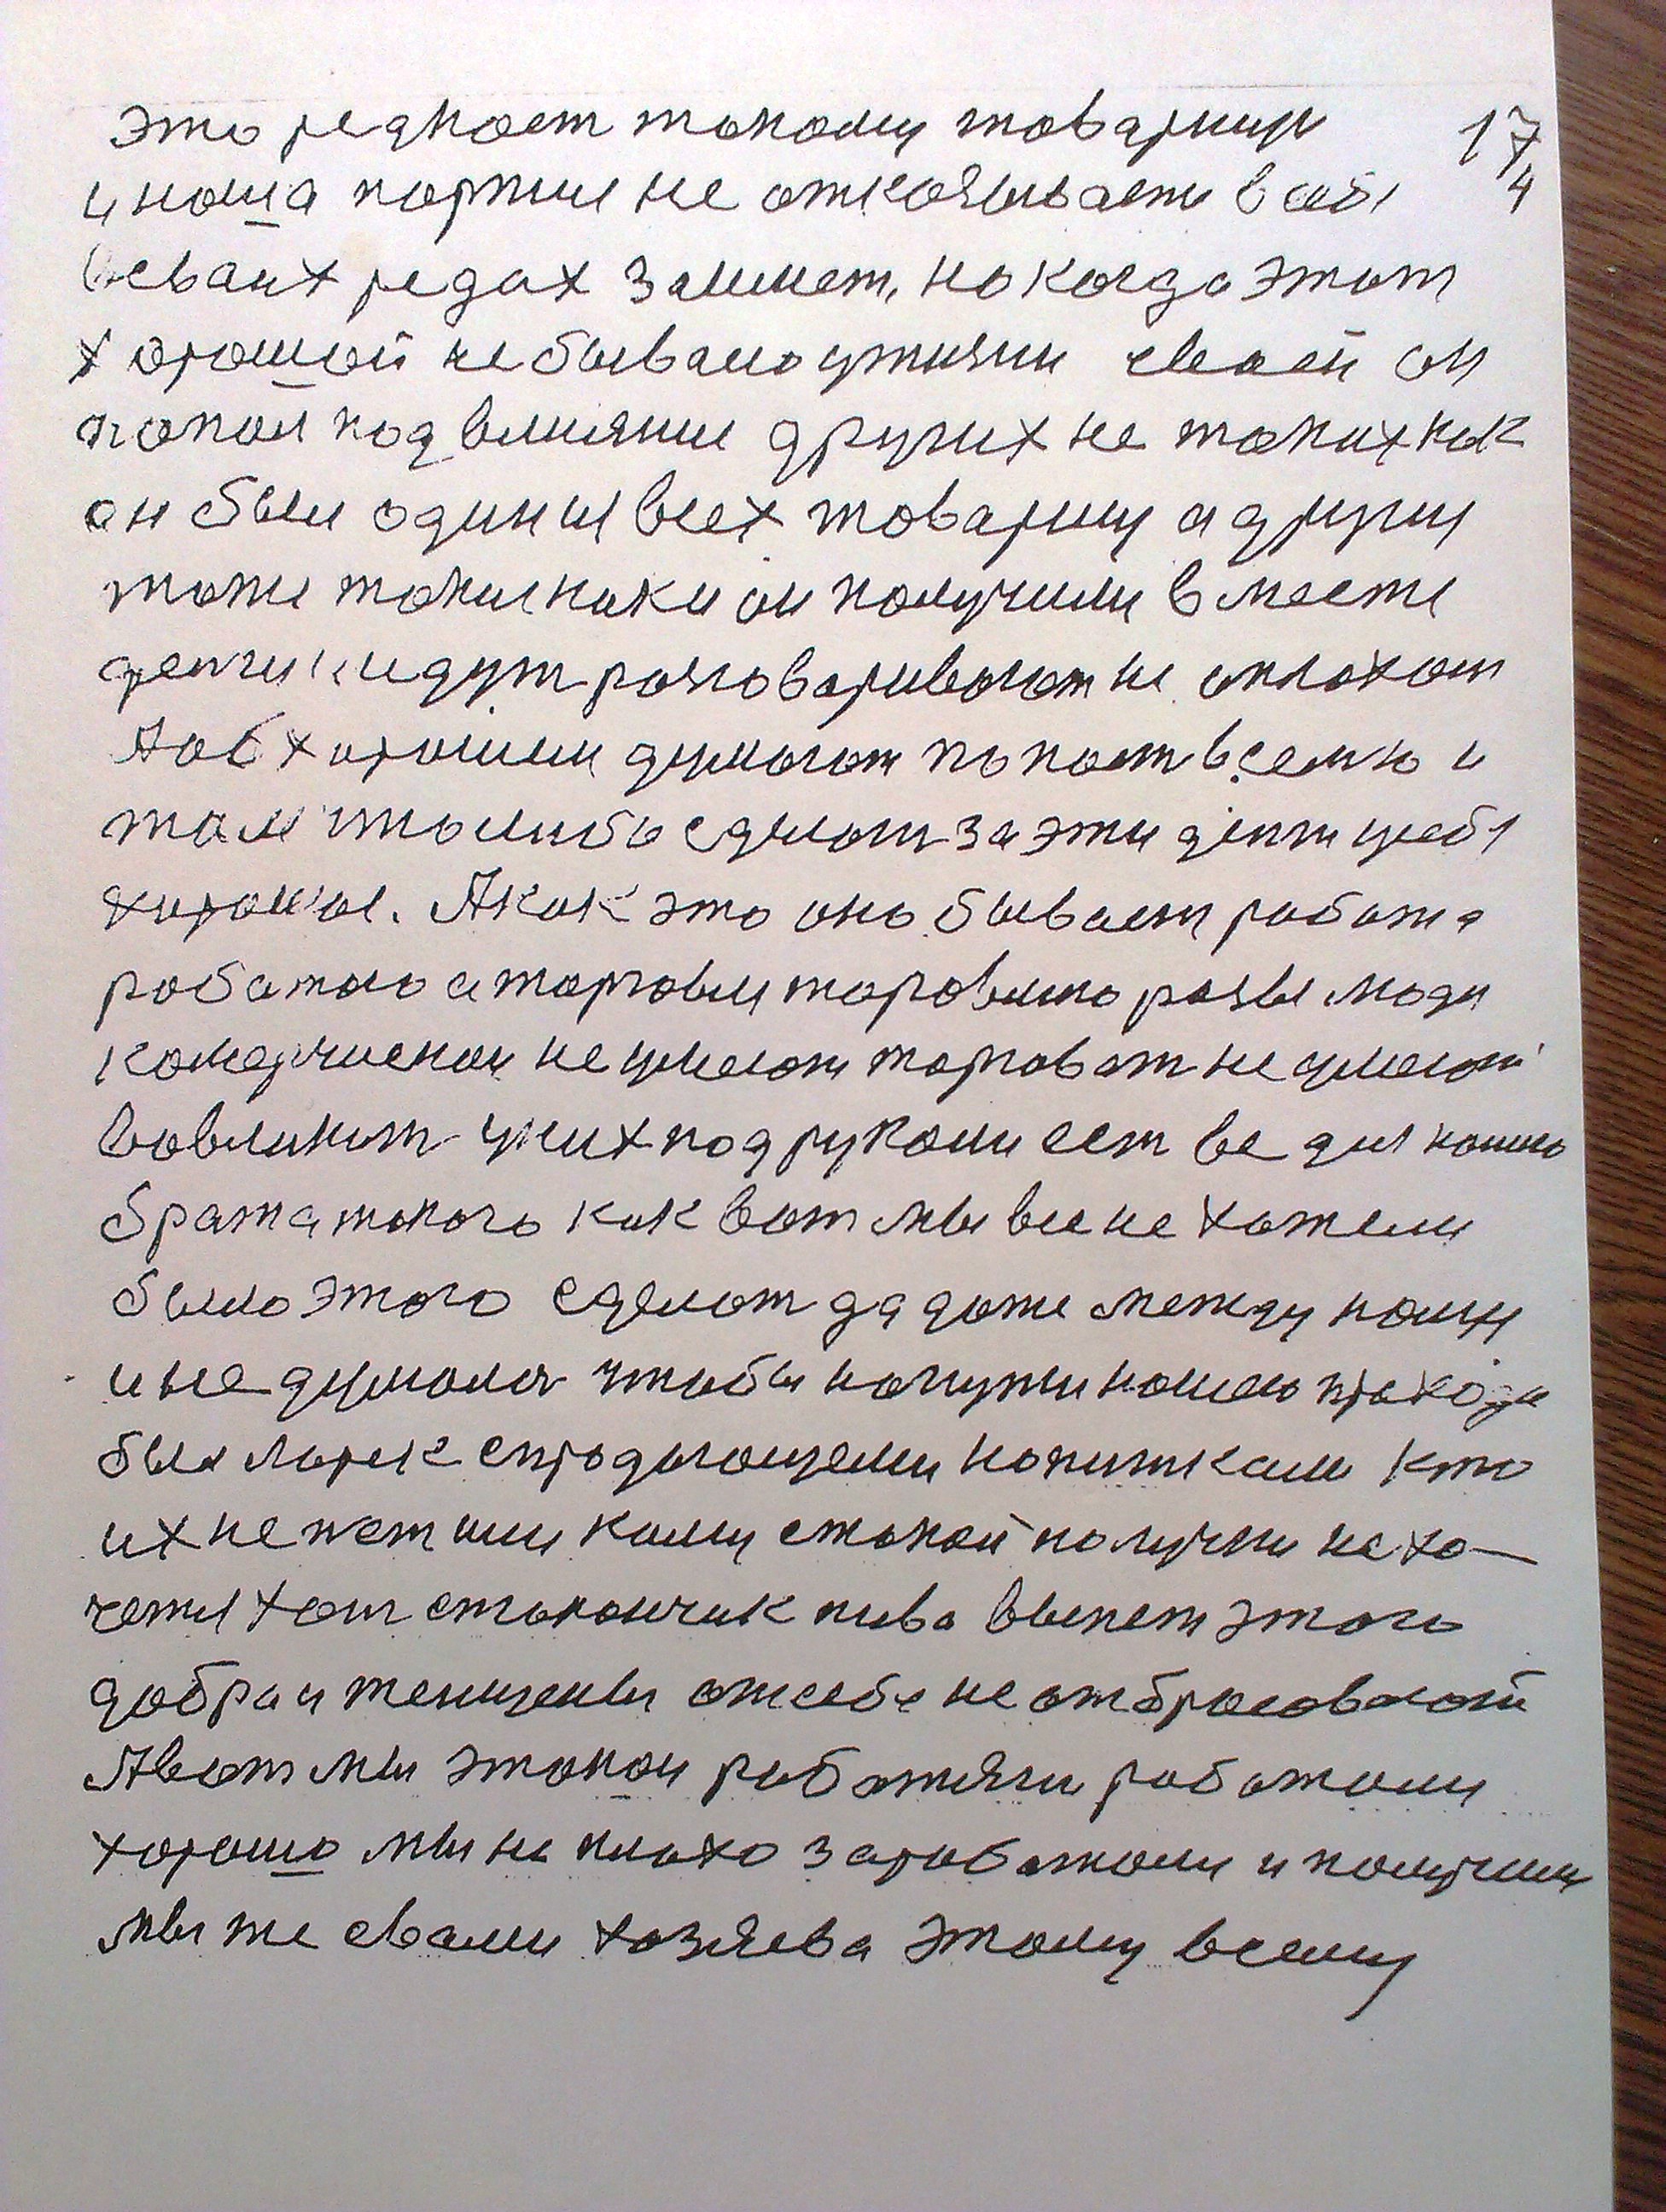 это редкост такому товарищу 17/4
и наша партия не отказывает в себя
в своих редах займет, но когда этот
хорошой не бывало утизни своей он
попал под влияние других не таких как
он был один из всех товарищ а други
тоже такие как и он получили вместе
денги и идут разговаривают не о плохом
А об хорошем думают попаст в семю и
там что либо сделат за эти денги себя
хорошое. А как это оно бывает работа
работаю а торговля торговлию разви люди
комерчиским не умеют торговат не умеют
вовликат у них под руками ест все для нашего
брата такого как вот мы все не хотели
было этого сделат да даже между нами
и не думалос чтобы на пути нашего прахода
был ларек с продающеми напитками кто
их не пет или кому с такой получки не хо-
четця хот стаканчик пива выпет этого
добра и женщены от себя не отбросовают
А вот мы этакои работяги работали
хорошо мы не плохо заработали и получили
мы же с вами хозяева этому всему